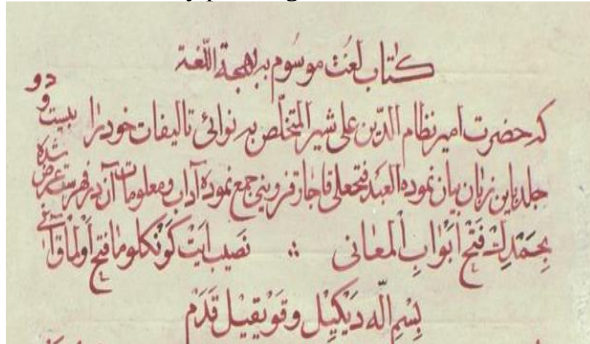 کتاب لغت موسوم به بهجة اللّغة
که حضرت امیر نظام الدّین علی شیر المتخلّص به نوائی تالیفات خود را بیست و دو
جلد باین زبان بیان نموده العبد فتحعلی قاجار قزوینی جمع نموده آداب و معلومات آن در فهرست عرض شده
بِحَمْدِكَ فَتْحِ اَبْوَابِ الْمَعَانی ∴ نَصیب ایْت کوُنْکلومَا فَتْح اوُلمَاق آنی
بِسْمِ الّه دیکیْل و قوَیْغیْل قَدَم